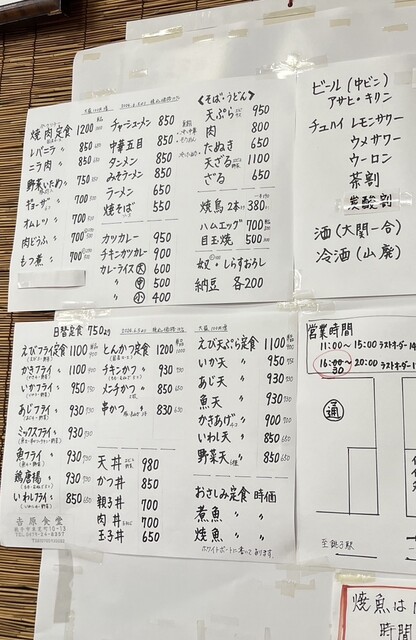 焼肉定食 1200
レバニラ 〃 850
ニラ肉 〃 850
野菜いため〃 750
ギョーザ 〃 700
オムレツ 〃 700
肉どうふ 〃 700
もつ煮 〃 700
チャーシューメン 850
中華五目 850
タンメン 850
みそラーメン 850
ラーメン 650
焼そば 550
カツカレー 950
チキンカツカレー 900
カレーライス 大 600
〃 中 500
〃 小 400
《そば・うどん》
天ぷら 950
肉 800
たぬき 650
天ざる 1100
ざる 650
焼鳥 2本 380
ハムエッグ 700
目玉焼 500
奴・しらすおろし
納豆 各200
ビール (中ビン)
アサヒ・キリン
チュハイ レモンサワー
ウメサワー
ウーロン
茶割
炭酸割
酒 (大関一合)
冷酒 (山廃)
日替定食 750
えびフライ定食 1100
かきフライ 〃 1100
いかフライ 〃 950
あじフライ 〃 930
ミックスフライ 〃 930
魚フライ 〃 930
鶏唐揚 〃 930
いわしフライ 〃 850
吉原食堂
とんかつ定食 1200
チキンかつ 〃 930
メンチかつ 〃 850
串かつ 〃 830
天丼 980
かつ丼 850
親子丼 700
肉丼 700
玉子丼 650
えび天ぷら定食 1100
いか天 〃 950
あじ天 〃 930
魚天 〃 930
かきあげ 〃 900
いわし天 〃 850
野菜天 〃 850
おさしみ定食 時価
煮魚 〃 〃
焼魚 〃 〃
ホワイトボードに書いてあります。
営業時間
11:00～15:00 ラストオーダー14
16:30～20:00 ラストオーダー
通
至銚子駅
焼魚は
時間